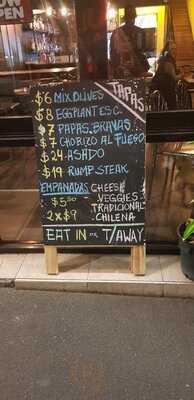 NOW
OPEN
TAPAS
$6 MIX OLIVES
$8 EGGPLANT ESC.
$7 PAPAS BRAVAS
$7 CHORIZO AL FUEGO
$24 ASADO
$19 RUMP STEAK
EMPANADAS CHEESE
$5.50 VEGGIES
2x$9 TRADICIONAL
CHILENA
EAT IN OR T/AWAY